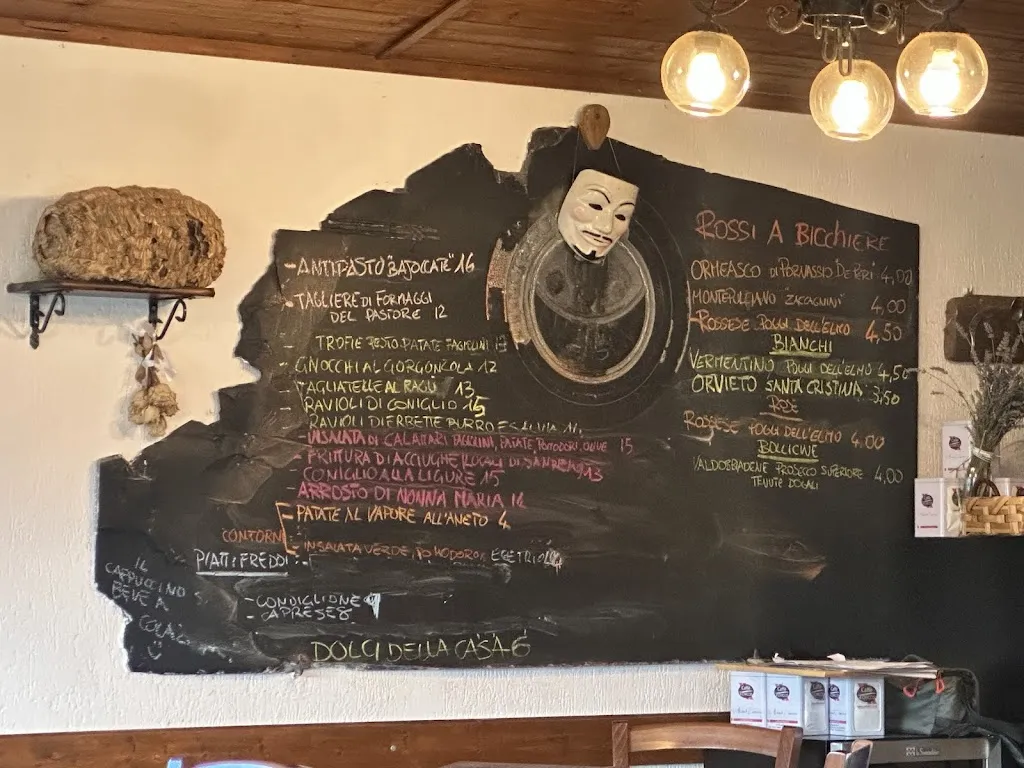 - ANTIPASTO "BAJOCCATE" 16
- TAGLIERE DI FORMAGGI
DEL PASTORE 12
- TROFIE PESTO PATATE FAGIOLINI
- GNOCCHI AL GORGONZOLA 12
- TAGLIATELLE AL RAGÙ 13
- RAVIOLI DI CONIGLIO 15
- RAVIOLI DI ERBETTE BURRO E SALVIA
- INSALATA DI CALAMARI FAGIOLINI, PATATE, POMODORI, OLIVE 15
- FRITTURA DI ACCIUGHE LOCALI DI SANREMO 13
- CONIGLIO ALLA LIGURE 15
- ARROSTO DI NONNA MARIA 14
CONTORNI
- PATATE AL VAPORE ALL'ANETO 4
- INSALATA VERDE, POMODORO E
PIATTI FREDDI:
- CONDIGLIONE 9
- CAPRESE 8
DOLCI DELLA CASA 6
IL
CAPPUCCINO
SI BEVE A
COLAZ
ROSSI A BICCHIERE
ORMEASCO DI PORNASSIO 4,00
MONTEPULCIANO "ZACCAGNINI" 4,00
ROSSESE POGGI DELL'ELMO 4,50
BIANCHI
VERMENTINO POGGI DELL'ELMO 4,50
ORVIETO SANTA CRISTINA 3,50
ROSÈ
ROSSESE POGGI DELL'ELMO 4.00
BOLLICINE
VALDOBBIADENE PROSECCO SUPERIORE 4,00
TENUTE DOGALI